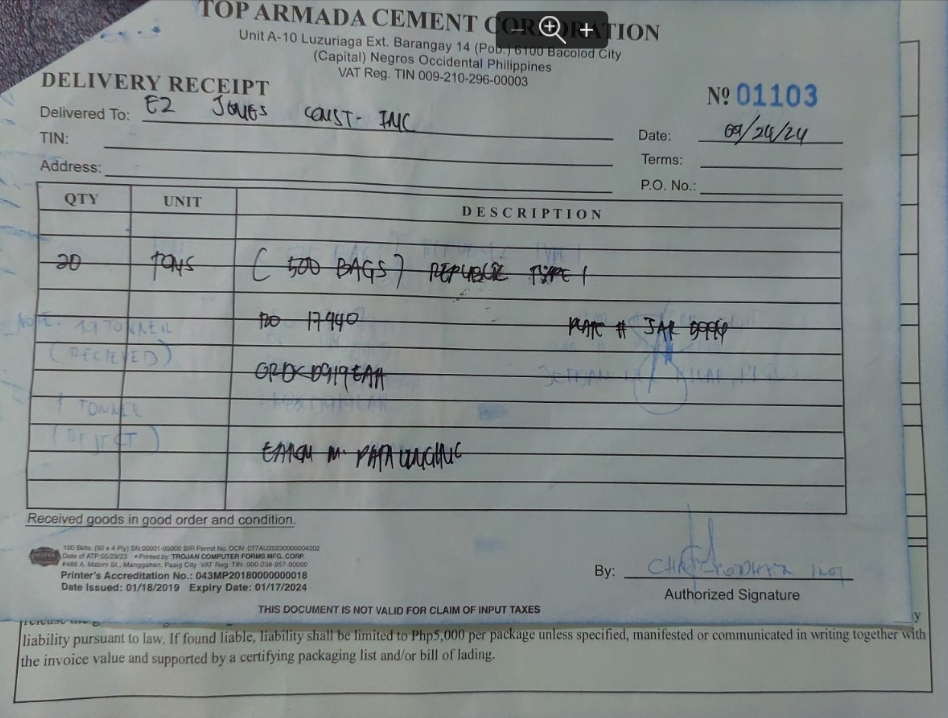 TOP ARMADA CEMENT CORPORATION
Unit A-10 Luzuriaga Ext. Barangay 14 (Pob.) 6100 Bacolod City
(Capital) Negros Occidental Philippines
VAT Reg. TIN 009-210-296-00003
DELIVERY RECEIPT
Nº 01103
Delivered To: EZ JONES CONST- INC
Date: 09/24/24
TIN:
Terms:
Address:
P.O. No.:
QTY UNIT DESCRIPTION
20 TONS (500 BAGS) REPUBLIC TYPE 1
NOTE: 19 TONNER
PO 17940 PLATE # JAK
(RECIEVED)
1 TONNER
(REJECT)
Received goods in good order and condition.
100 Bklts. (50 x 4 Ply)
Date of ATP: Printed by: TROJAN COMPUTER FORMS MFG. CORP.
Manggahan, Pasig City VAT Reg. TIN:
Printer's Accreditation No.: 043MP20180000000018
Date Issued: 01/18/2019 Expiry Date: 01/17/2024
By:
Authorized Signature
THIS DOCUMENT IS NOT VALID FOR CLAIM OF INPUT TAXES
liability pursuant to law. If found liable, liability shall be limited to Php5,000 per package unless specified, manifested or communicated in writing together with
the invoice value and supported by a certifying packaging list and/or bill of lading.